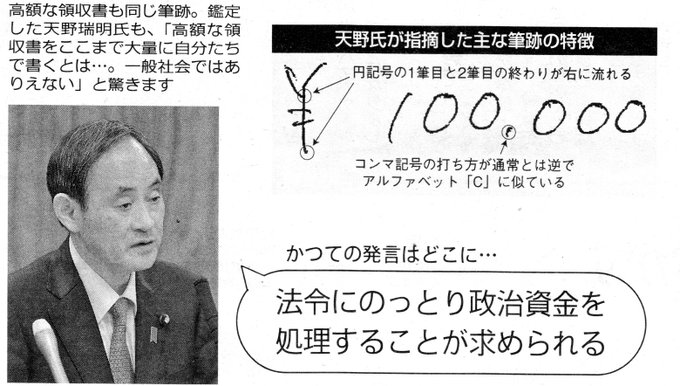 高額な領収書も同じ筆跡。鑑定
した天野瑞明氏も、「高額な領
収書をここまで大量に自分たち
で書くとは…。一般社会ではあ
りえない」と驚きます
天野氏が指摘した主な筆跡の特徴
円記号の1筆目と2筆目の終わりが右に流れる
¥100,000
コンマ記号の打ち方が通常とは逆で
アルファベット「C」に似ている
かつての発言はどこに…
法令にのっとり政治資金を
処理することが求められる